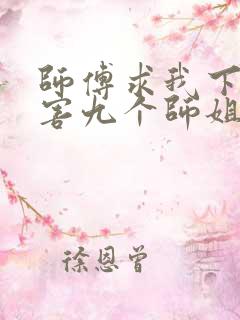 師傅求我下
害九个師姐
徐恩曾